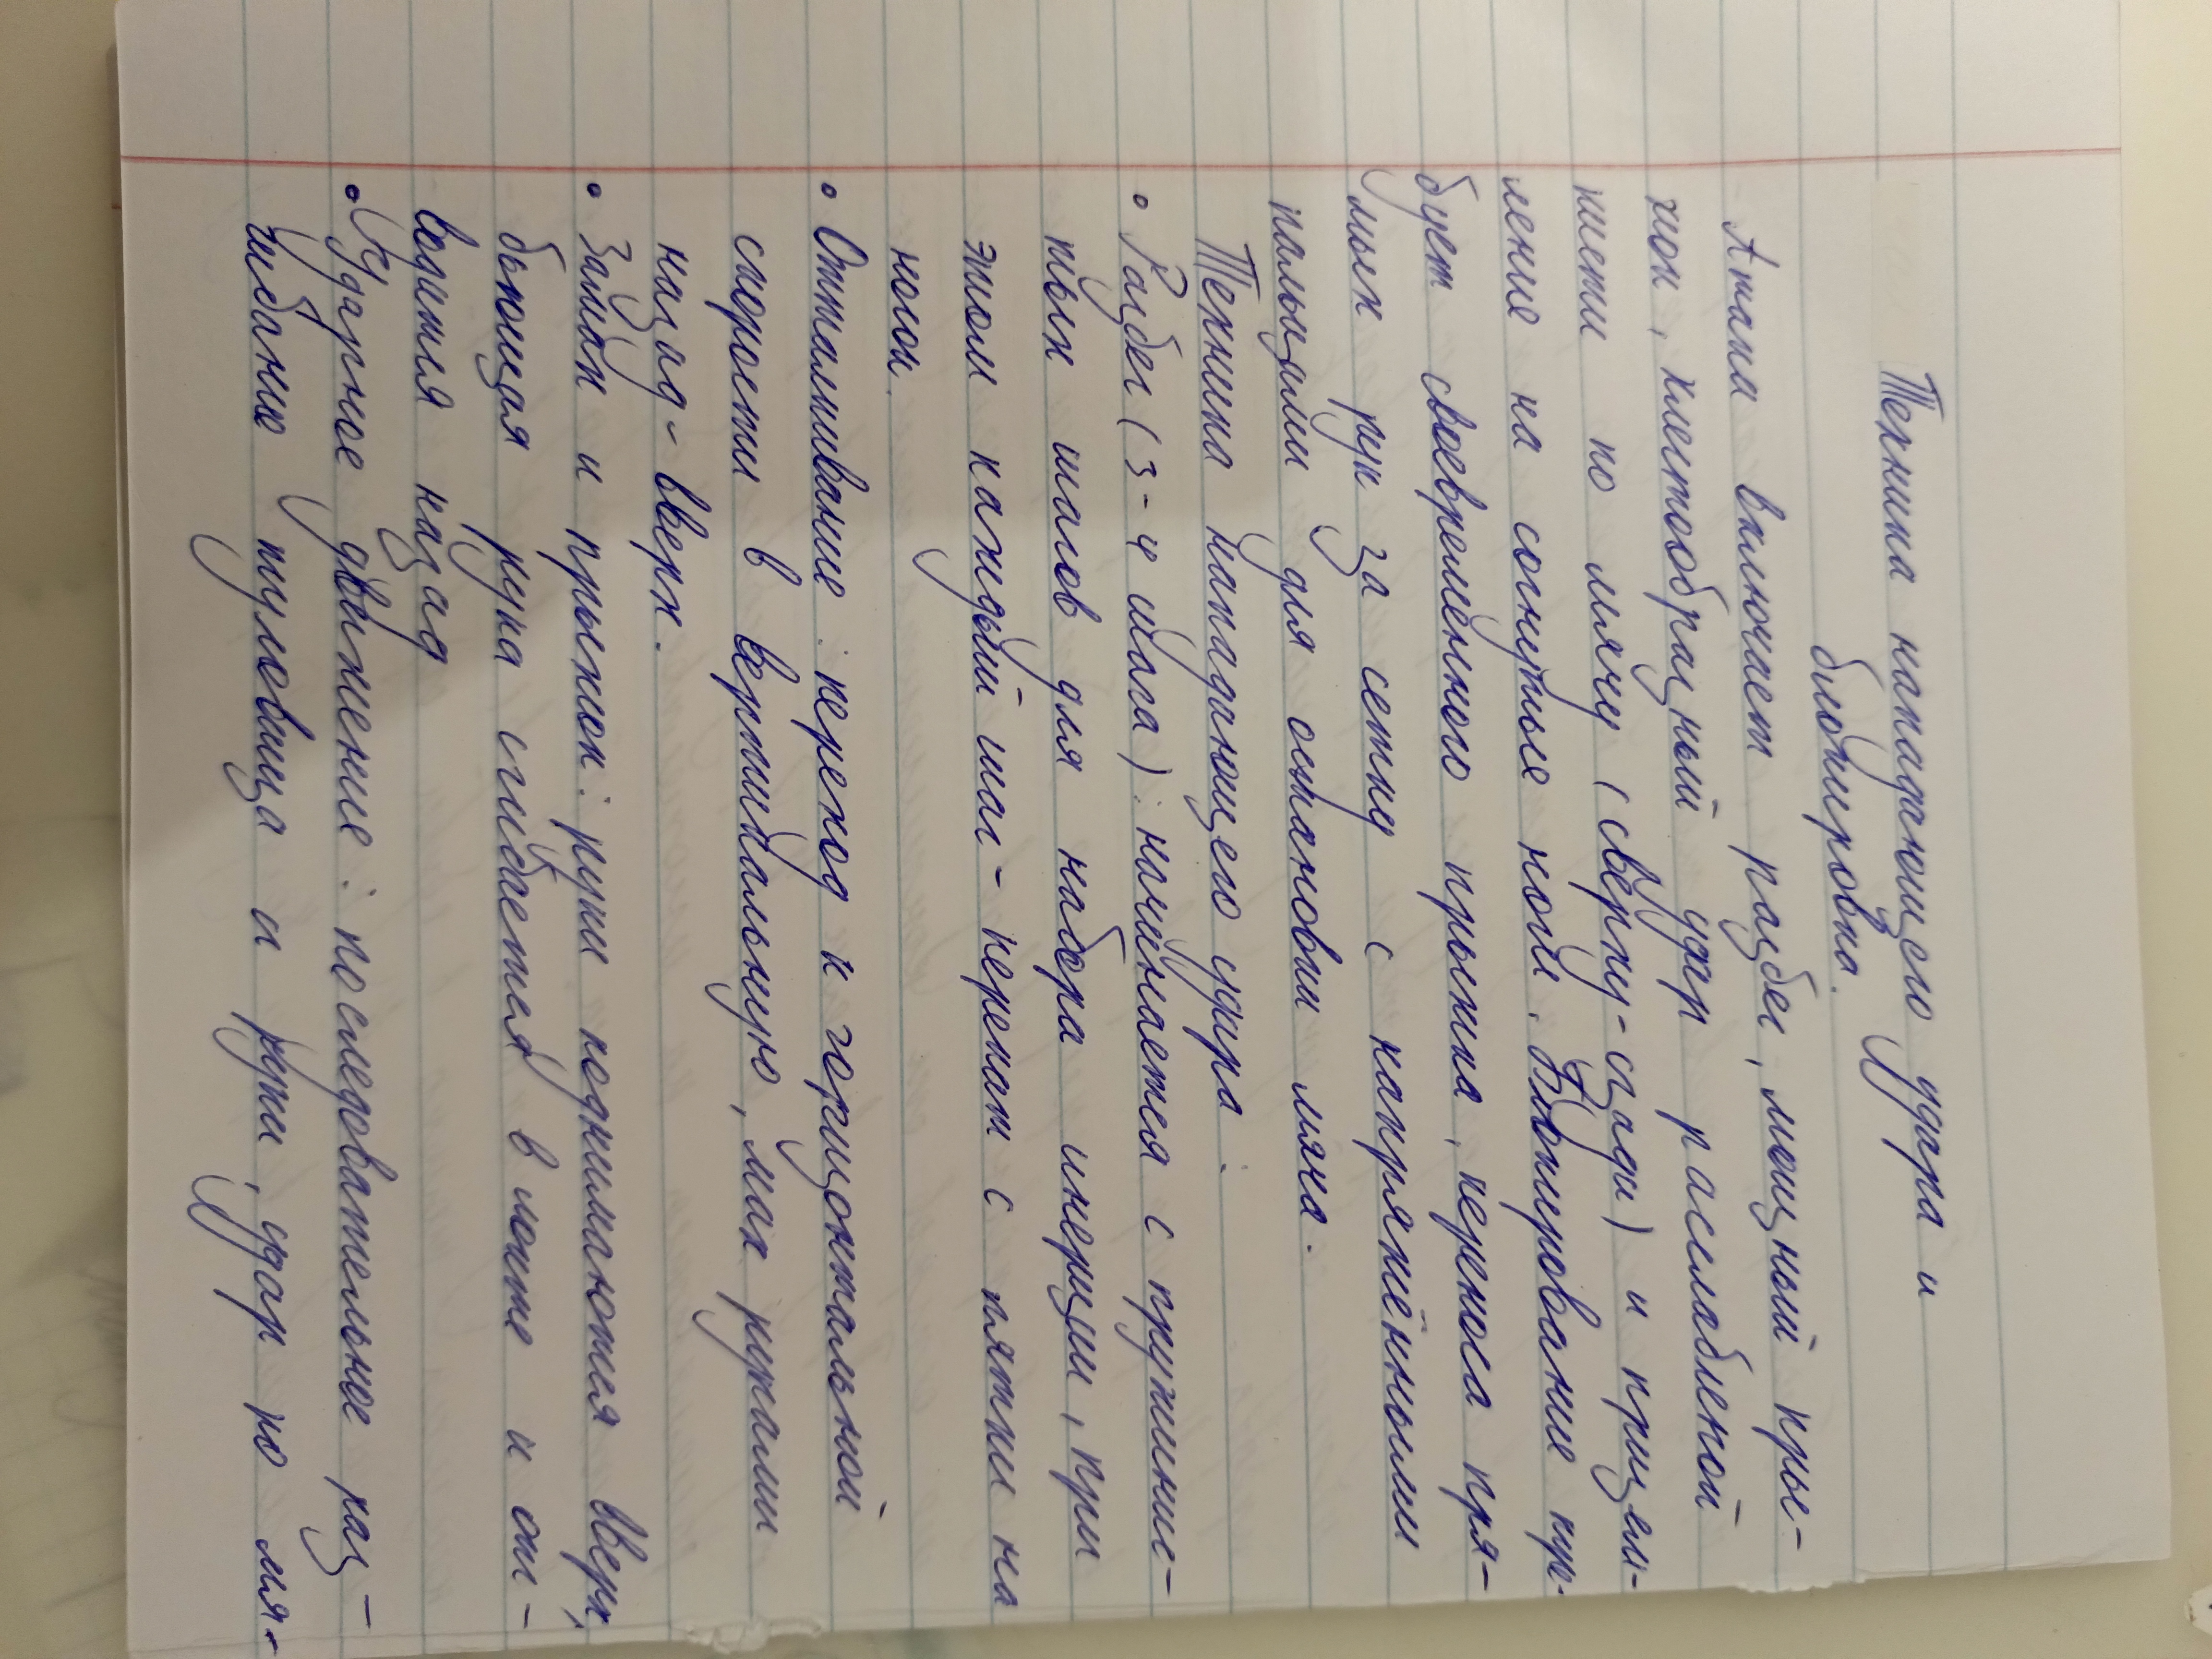 Техника нападающего удара и
блокировка.
Атака включает разбег, мощный пры-
жок, хлестообразный удар расслабленой
кисти по мячу (сверху-сзади) и призем-
ление на согнутые ноги. Блокирование тре-
бует своевременного прыжка, переноса пря-
мых рук за сетку с напряжёнными
пальцами для остановки мяча.
Техника нападающего удара.
• Разбег (3-4 шага): начинается с пружинис-
тых шагов для набора инерции, при
этом каждый шаг - перекат с пятки на
носок.
• Отталкивание: переход к горизонтальной
скорости в вертикальную, мах руками
назад-вверх.
• Замах и прыжок: руки поднимаются вверх,
бьющая рука сгибается в локте и от-
водится назад
• Ударное движение: последовательное раз-
гибание туловища и руки, удар по мя-